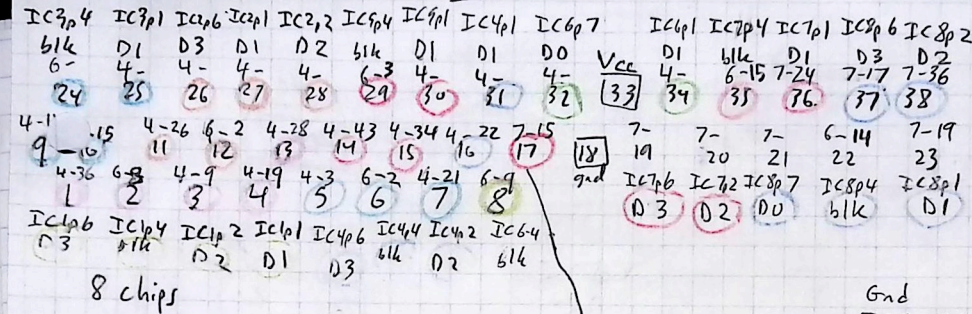 IC3p4 IC3p1 IC2p6 IC2p1 IC2p2 IC5p4 IC5p1 IC4p1 IC6p7 IC6p1 IC7p4 IC7p1 IC8p6 IC8p2
blk D1 D3 D1 D2 blk D1 D1 D0 Vcc D1 blk D1 D3 D2
6- 4- 4- 4- 4- 6-3 4- 4- 4- 4- 6-15 7-24 7-17 7-36
24 25 26 27 28 29 30 31 32 33 34 35 36 37 38
-15 4-26 6-2 4-28 4-43 4-34 4-22 7-15 7- 7- 7- 6-14 7-19
9 10 11 12 13 14 15 16 17 18 19 20 21 22 23
4-36 4-9 4-19 4-3 6-2 4-21 6-9 gnd IC7p6 IC7p2 IC8p7 IC8p4 IC8p1
1 2 3 4 5 6 7 8 D3 D2 D0 blk D1
IC1p6 IC1p4 IC1p2 IC1p1 IC4p6 IC4p4 IC4p2 IC6-4
D3 blk D2 D1 D3 blk D2 blk
8 chips Gnd